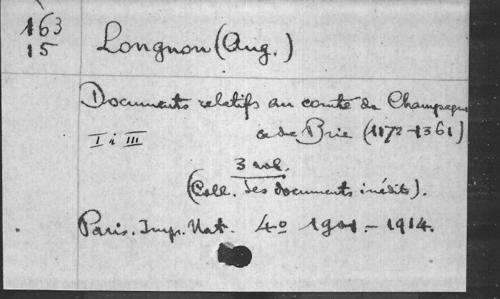 163
15
Longnon (Aug.)
Documents relatifs au comté de Champagne
I à III
et de Brie (1172-1361)
3 vol.
(Coll. des documents inédits).
Paris. Imp. Nat. 4º 1901.-1914.